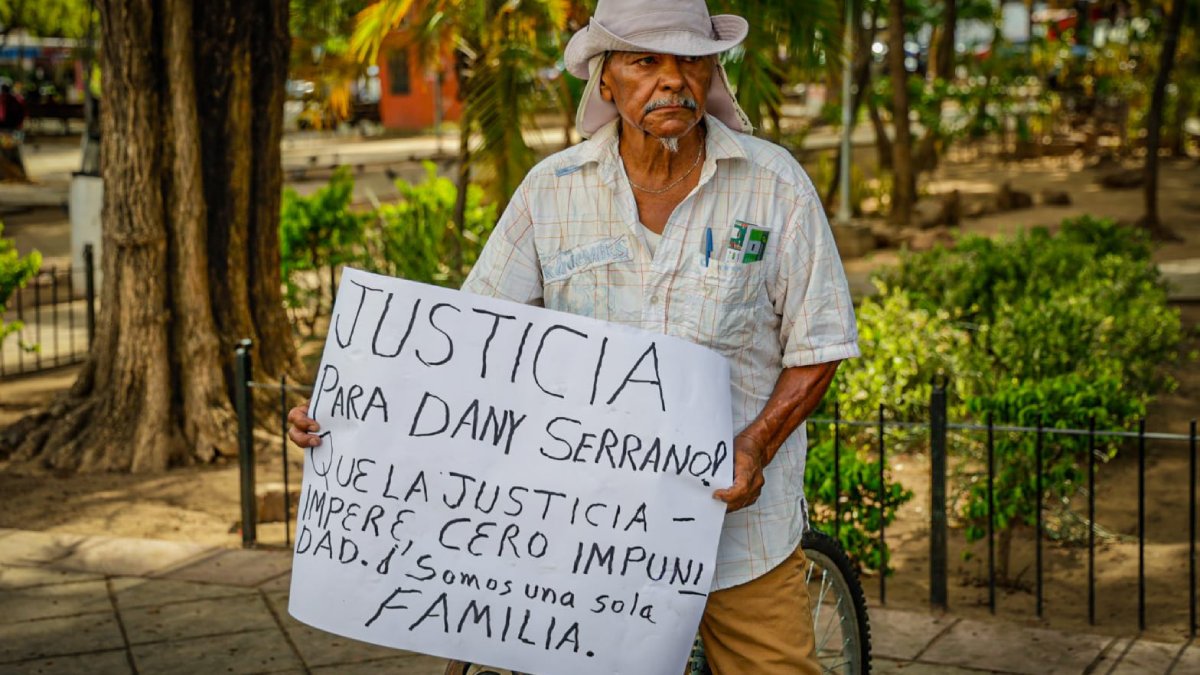 JUSTICIA
PARA DANY SERRANO!
QUE LA JUSTICIA -
IMPERE, CERO IMPUNI
DAD. ¡SOMOS UNA SOLA
FAMILIA.